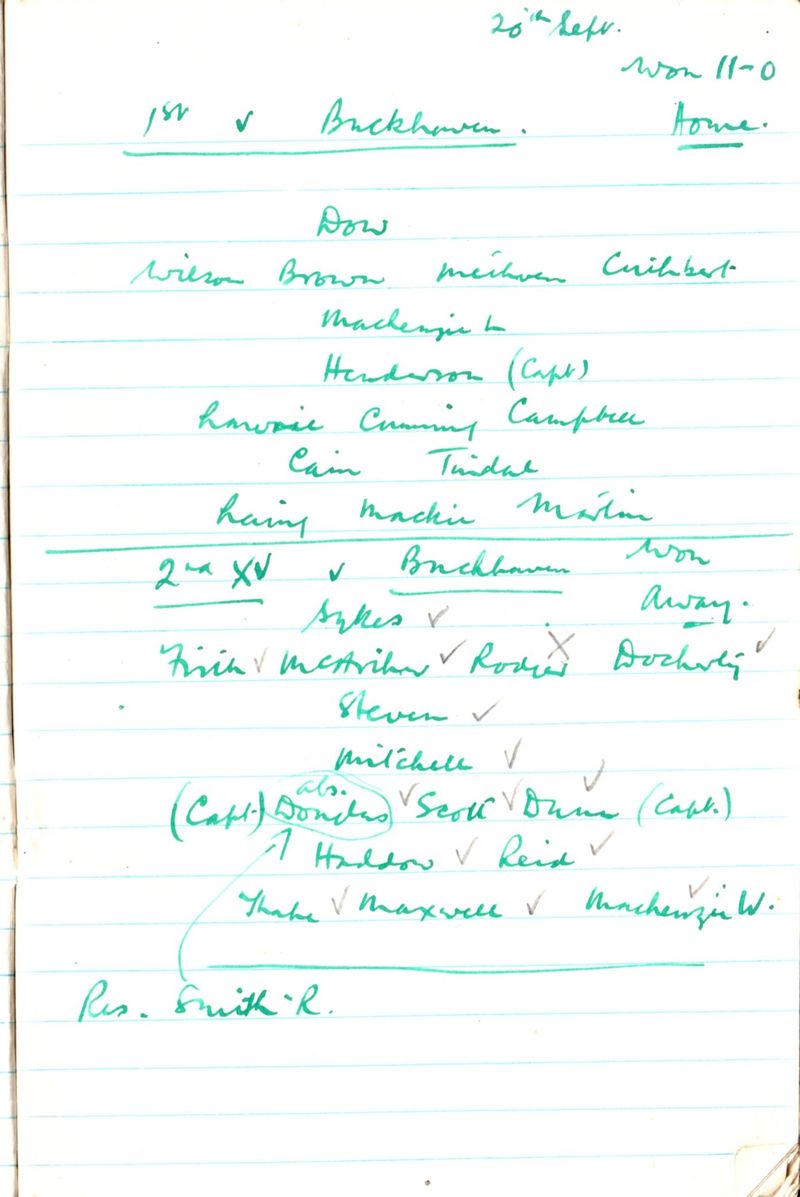 20th Sept.
Won 11-0
1st v Buckhaven. Home.
Dow
Wilson Brown Methven Cuthbert
Mackenzie L
Henderson (Capt)
Lawrie Cumming Campbell
Cain Tindal
Laing Mackie Martin
2nd XV v Buckhaven Won
Away.
Sykes ✓
Firth ✓ McArthur ✓ Rodger X Docherty ✓
Steven ✓
Mitchell ✓
abs.
(Capt.) Douglas ✓ Scott ✓ Dunn ✓ (Capt.)
Haddow ✓ Reid ✓
✓ Maxwell ✓ Mackenzie W. ✓
Res. Smith R.